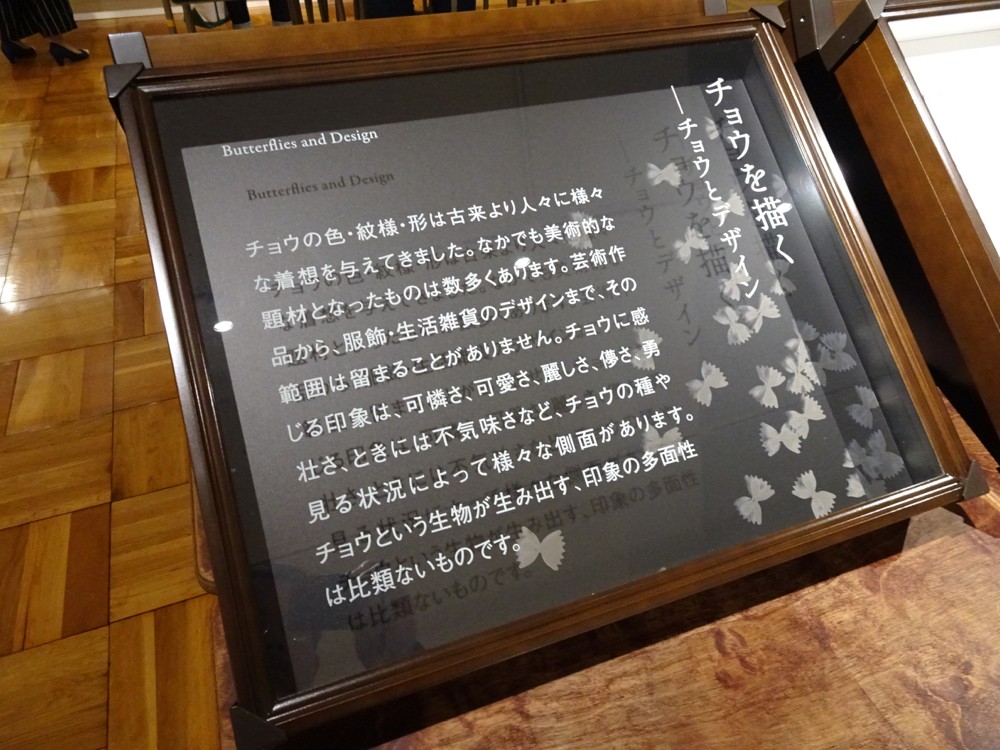 チョウを描く
―チョウとデザイン
Butterflies and Design
チョウの色・紋様・形は古来より人々に様々
な着想を与えてきました。なかでも美術的な
題材となったものは数多くあります。芸術作
品から、服飾・生活雑貨のデザインまで、その
範囲は留まることがありません。チョウに感
じる印象は、可憐さ、可愛さ、麗しさ、儚さ、勇
壮さ、ときには不気味さなど、チョウの種や
見る状況によって様々な側面があります。
チョウという生物が生み出す、印象の多面性
は比類ないものです。